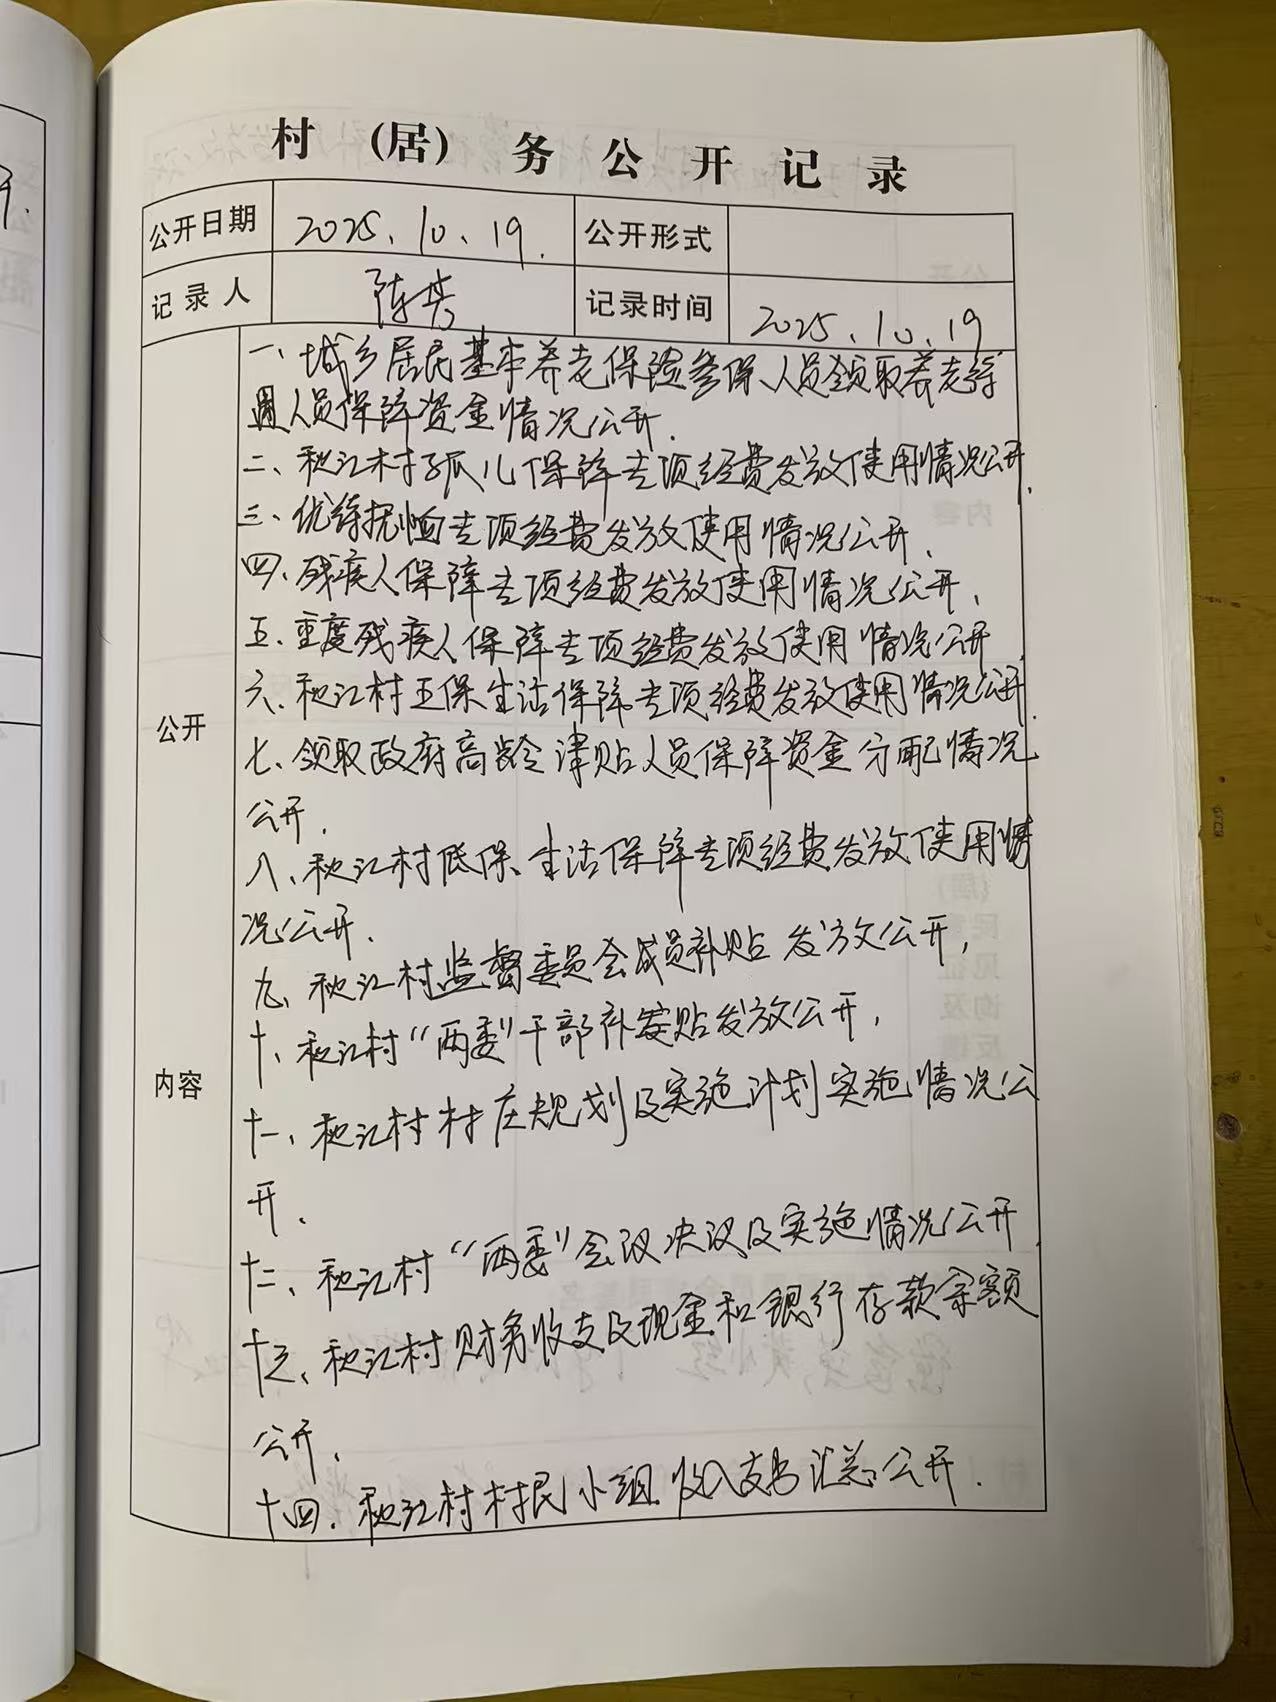 村（居）务公开记录
公开日期 2025.10.19. 公开形式
记录人 陈芳 记录时间 2025.10.19
公开
内容
一、城乡居民基本养老保险参保人员领取养老待
遇人员保障资金情况公开.
二、秋江村孤儿保障专项经费发放使用情况公开.
三、优待抚恤专项经费发放使用情况公开、
四、残疾人保障专项经费发放使用情况公开、
五、重度残疾人保障专项经费发放使用情况公开.
六、秋江村五保生活保障专项经费发放使用情况公开.
七、领取政府高龄津贴人员保障资金分配情况
公开.
八、秋江村低保生活保障专项经费发放使用情
况公开.
九、秋江村监督委员会成员补贴发放公开,
十、秋江村“两委”干部补贴发放公开,
十一、秋江村村庄规划及实施计划实施情况公
开.
十二、秋江村“两委”会议决议及实施情况公开.
十三、秋江村财务收支及现金和银行存款余额
公开.
十四.秋江村村民小组收入支出汇总公开.